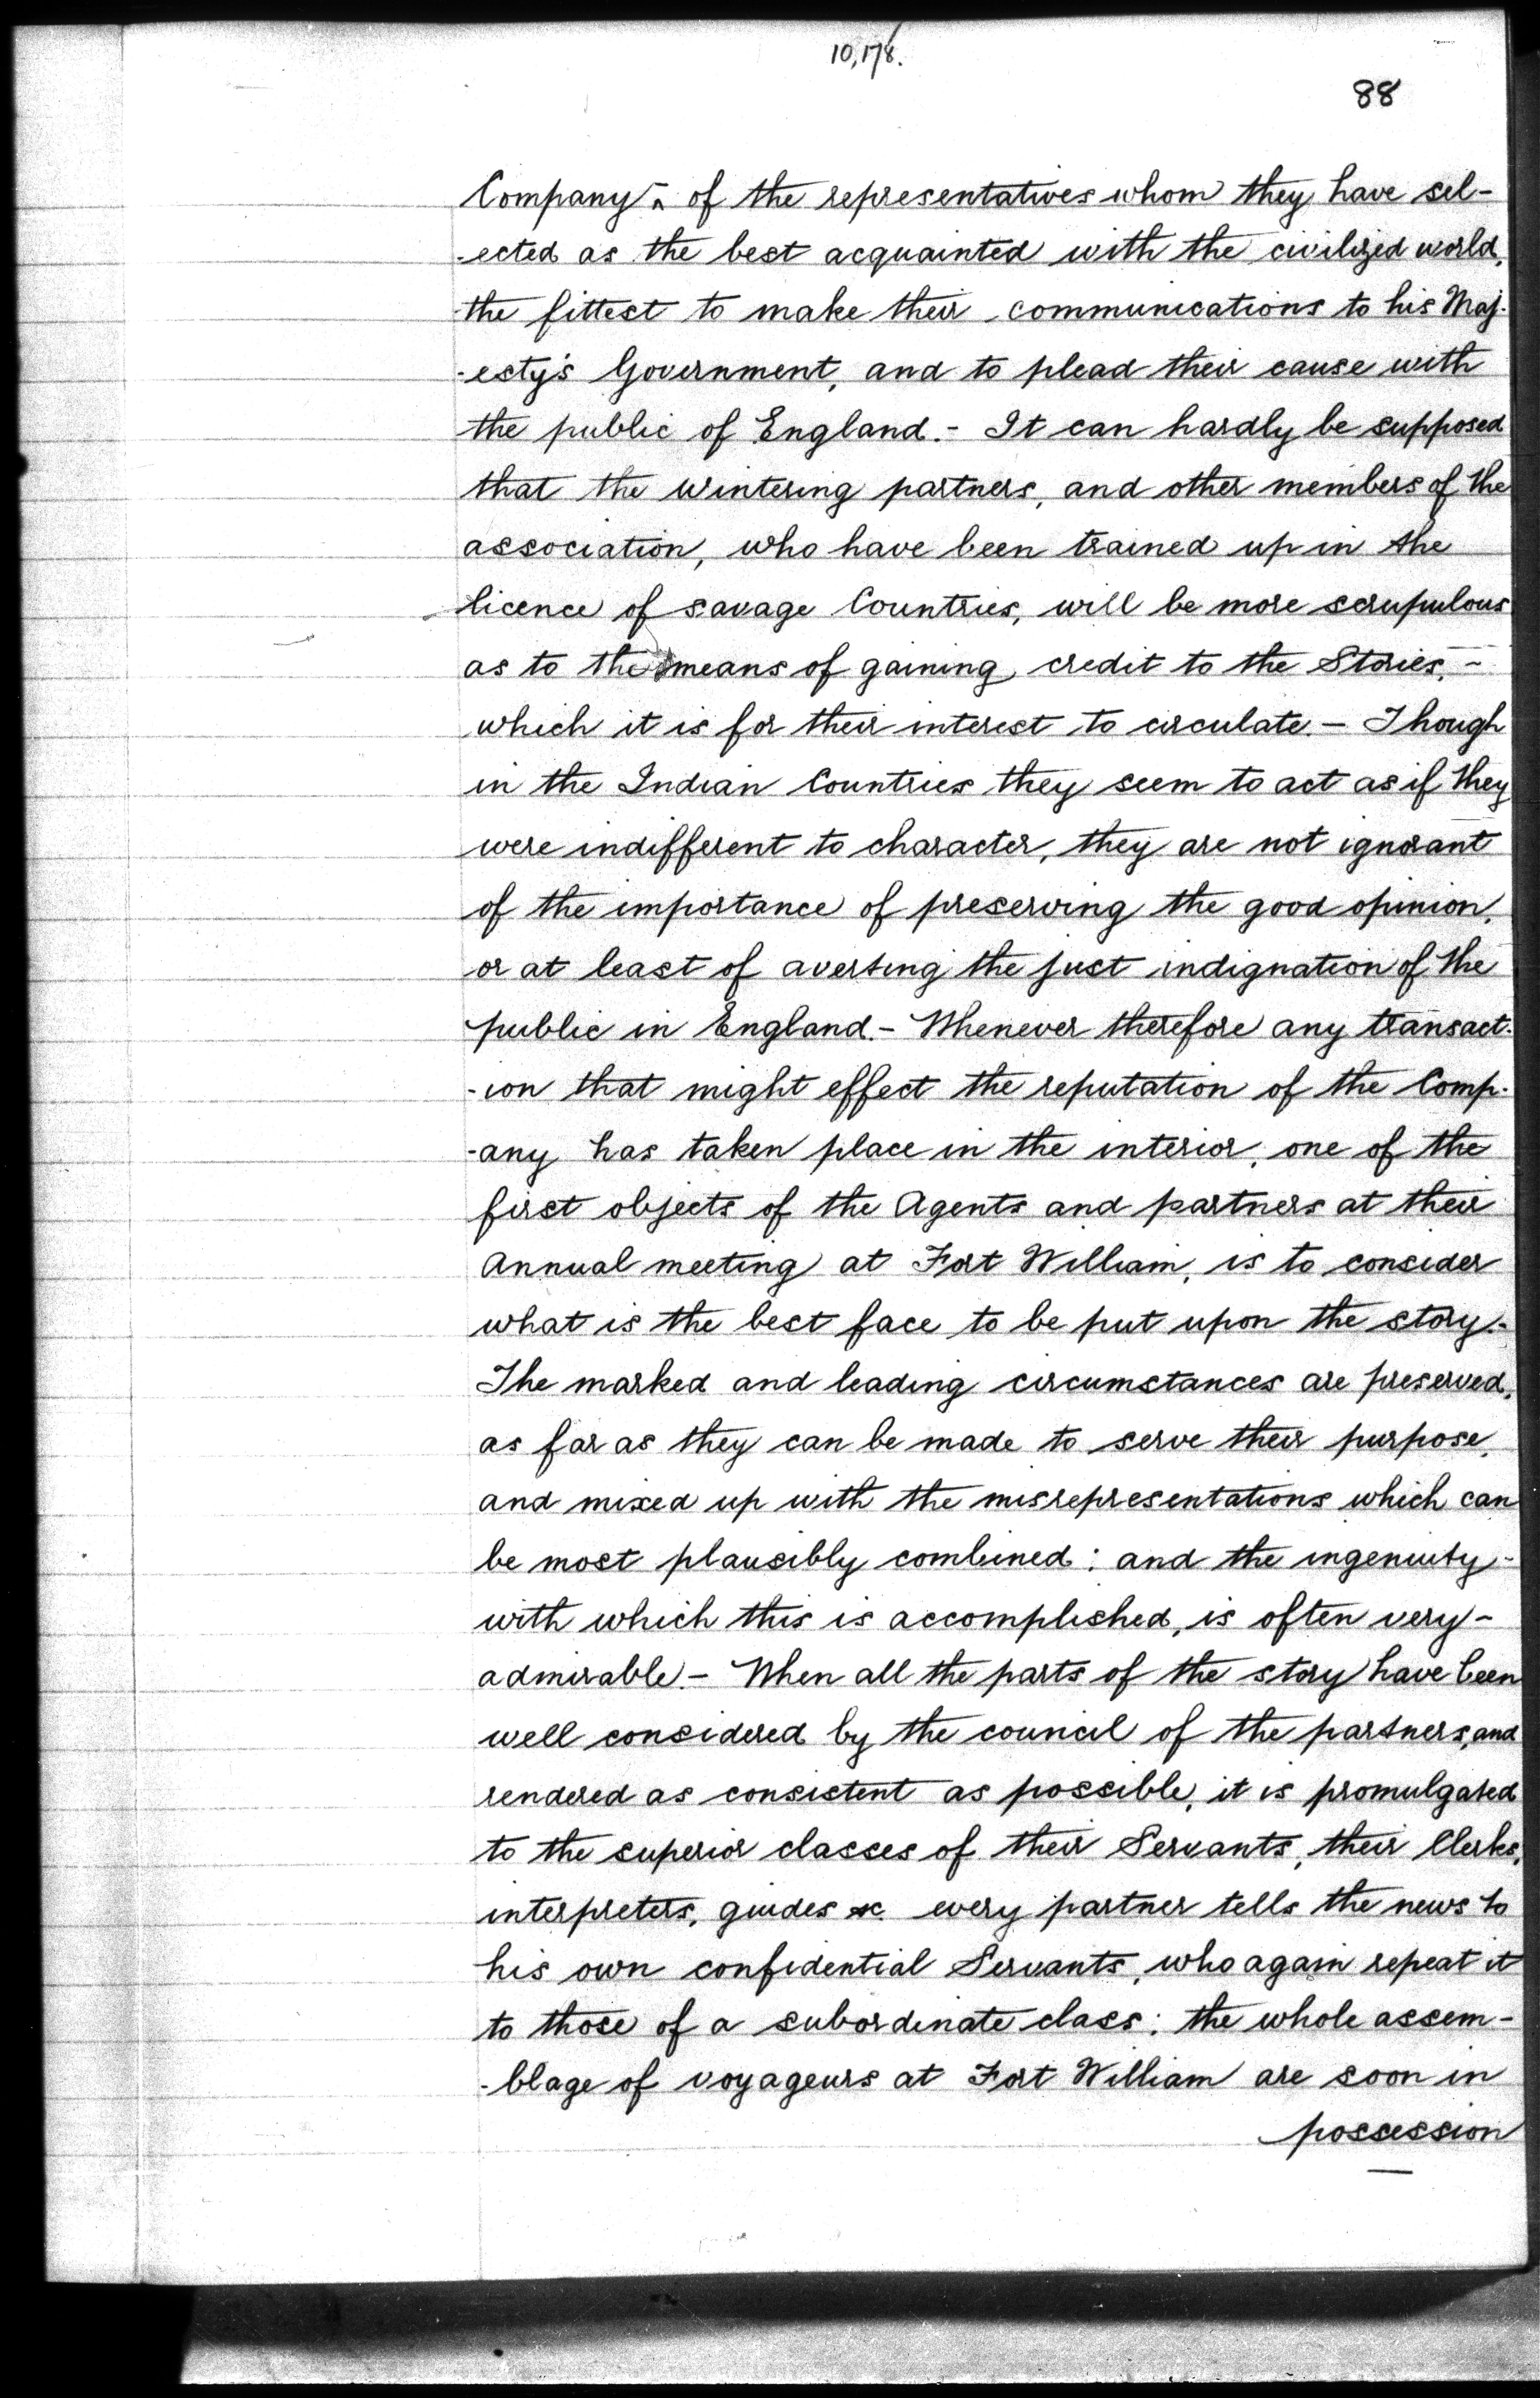 10,178.
88
Company - of the representatives whom they have sel-
-ected as the best acquainted with the civilized world,
the fittest to make their communications to his Maj-
-esty's Government, and to plead their cause with
the public of England.- It can hardly be supposed
that the wintering partners, and other members of the
association, who have been trained up in the
licence of savage Countries, will be more scrupulous
as to the means of gaining credit to the Stories, -
which it is for their interest to circulate. - Though
in the Indian Countries they seem to act as if they
were indifferent to character, they are not ignorant
of the importance of preserving the good opinion,
or at least of averting the just indignation of the
public in England. - Whenever therefore any transact-
-ion that might effect the reputation of the Comp-
-any has taken place in the interior, one of the
first objects of the Agents and partners at their
Annual meeting at Fort William, is to consider
what is the best face to be put upon the story.-
The marked and leading circumstances are preserved,
as far as they can be made to serve their purpose,
and mixed up with the misrepresentations which can
be most plausibly combined: and the ingenuity -
with which this is accomplished, is often very -
admirable. - When all the parts of the story have been
well considered by the council of the partners, and
rendered as consistent as possible, it is promulgated
to the superior classes of their Servants, their Clerks,
interpreters, guides &c. every partner tells the news to
his own confidential Servants, who again repeat it
to those of a subordinate class: the whole assem-
-blage of voyageurs at Fort William are soon in
possession